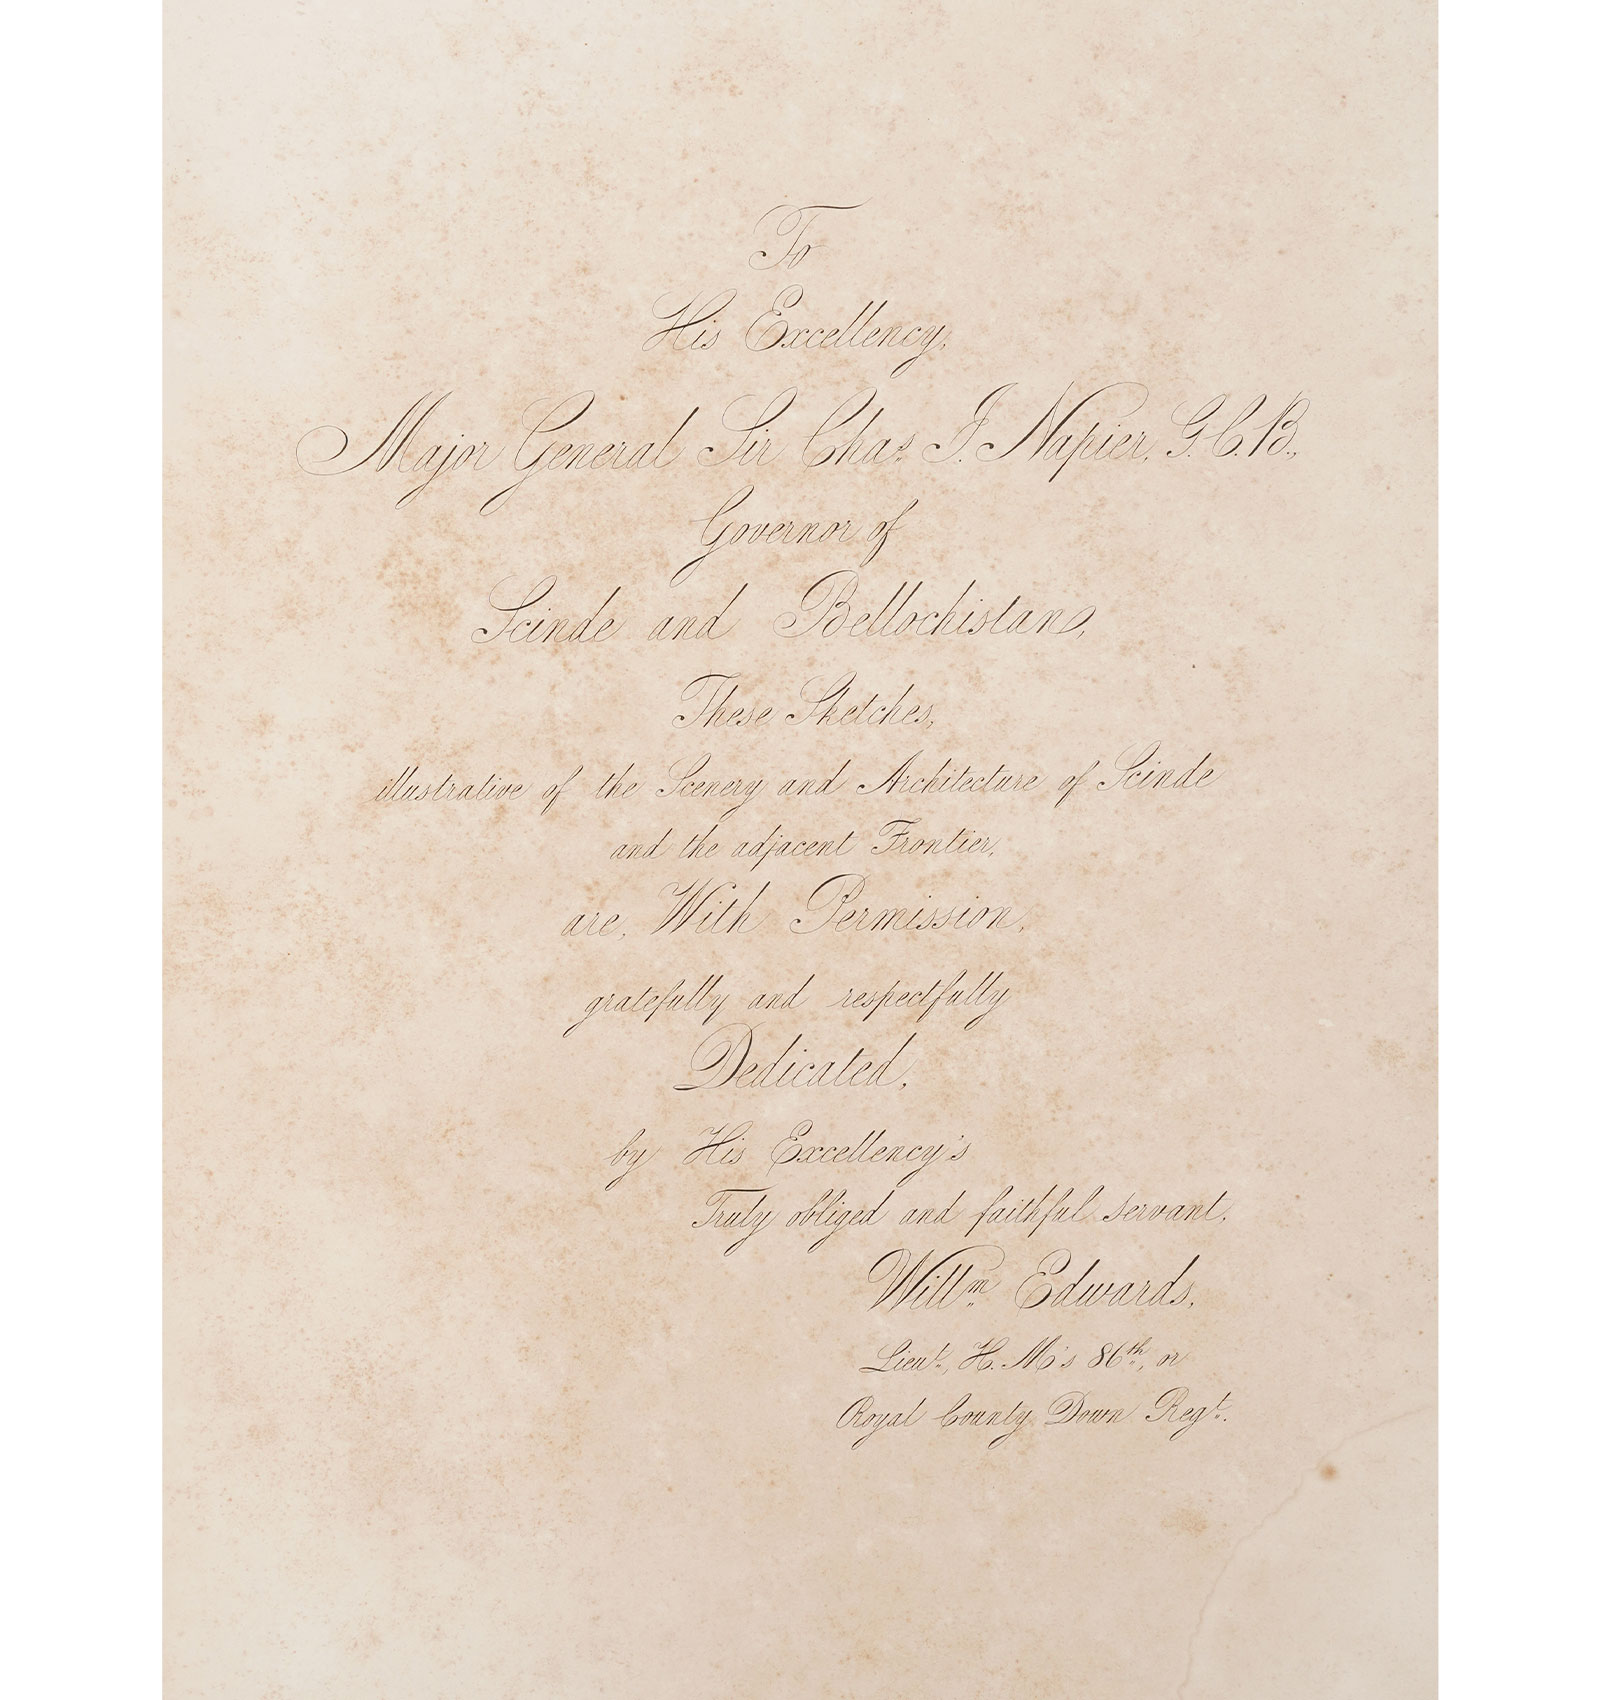 To
His Excellency,
Major General Sir Chas. J. Napier, G.C.B.,
Governor of
Scinde and Bellochistan,
These Sketches,
illustrative of the Scenery and Architecture of Scinde
and the adjacent Frontier,
are, With Permission,
gratefully and respectfully
Dedicated,
by His Excellency's
Truly obliged and faithful servant,
Willm. Edwards,
Lieut., H. M's 86th., or
Royal County Down Regt.